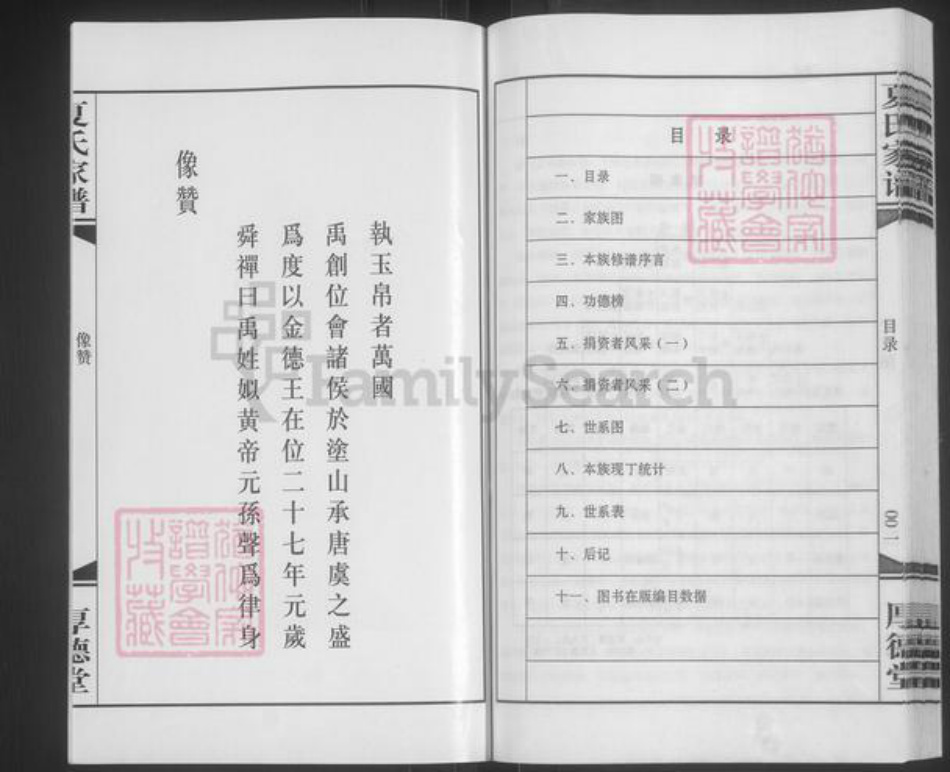 夏氏家谱
目录
〇〇一
厚德堂
目 录
一、目录
二、家族图
三、本族修谱序言
四、功德榜
五、捐资者风采（一）
六、捐资者风采（二）
七、世系图
八、本族现丁统计
九、世系表
十、后记
十一、图书在版编目数据
執玉帛者萬國
禹創位會諸侯於塗山承唐虞之盛
爲度以金德王在位二十七年元歲
舜禪曰禹姓姒黄帝元孫聲爲律身
像贊
夏氏家谱
像赞
厚德堂
FamilySearch
譜學會
收藏
譜學會
收藏